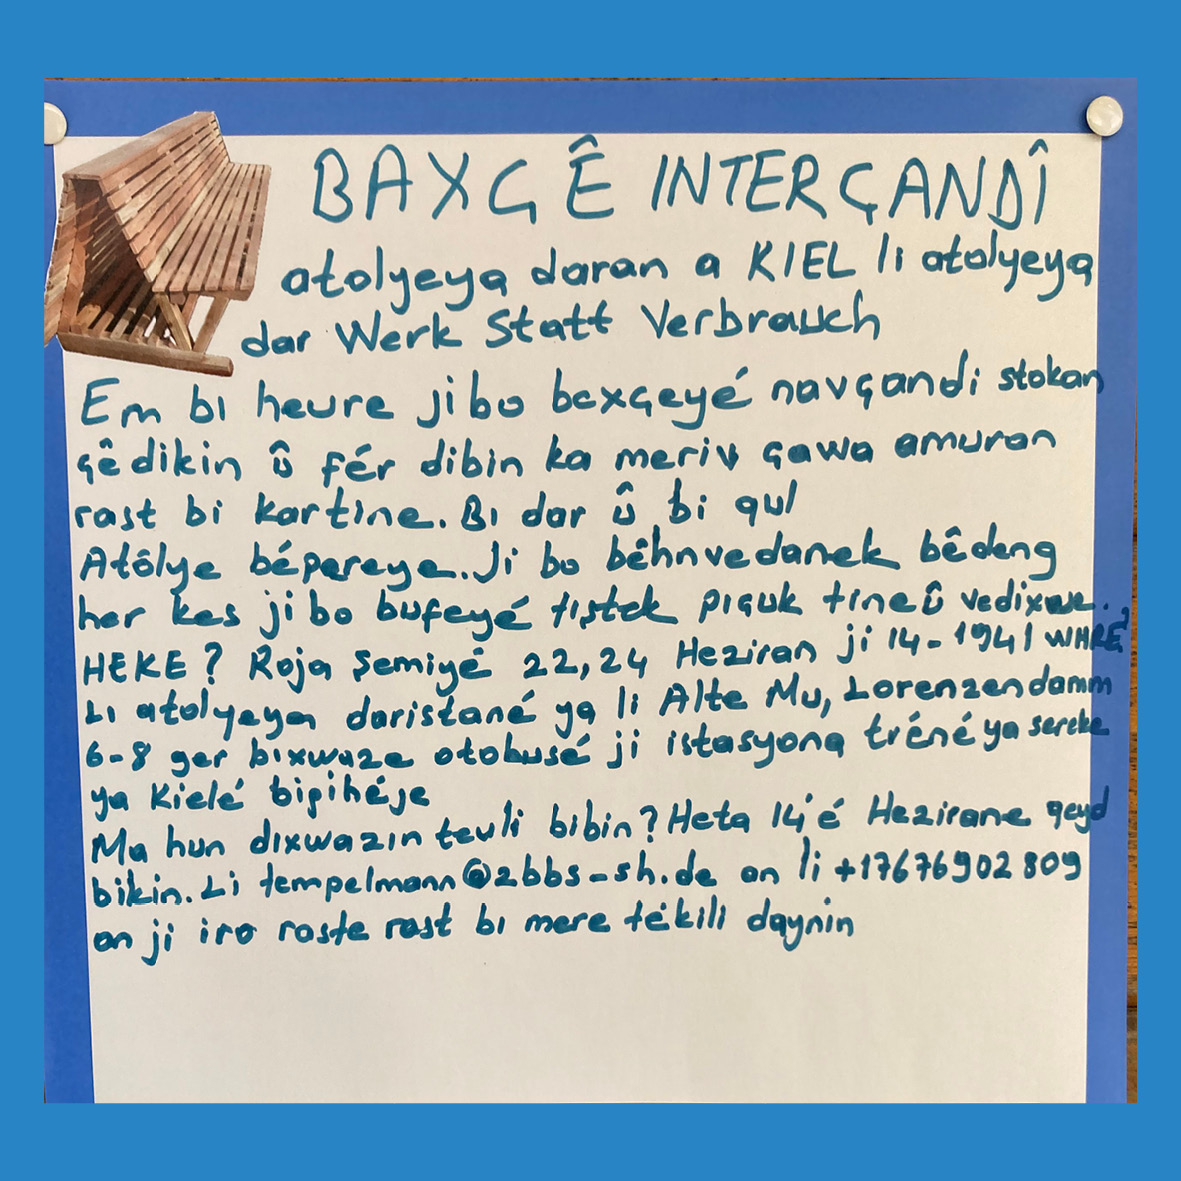 BAXÇÊ INTERÇANDÎ
atolyeya daran a KIEL li atolyeya
dar Werk Statt Verbrauch
Em bı heure ji bo baxçeyé navçandi stokan
çêdikin û fér dibin ka meriv çawa amuran
rast bi kartine. Bı dar û bi qul
Atôlye bépereye. Ji bo bêhnvedanek bêdeng
her kes ji bo bufeyé tıştek pıçuk tine û vedixwe.
HEKE? Roja Şemiyé 22,24 Heziran ji 14-1941 WHRE?
Lı atolyeya daristané ya li Alte Mu, Lorenzendamm
6-8 ger bıxwaze otobusé ji istasyona tréné ya sereke
ya Kielé bipihéje
Ma hun dıxwazın tevli bibin? Heta 14'é Hezirane qeyd
bikin. Li tempelmann@zbbs-sh.de an li +17676902809
an ji iro raste rast bı mere tékili daynin